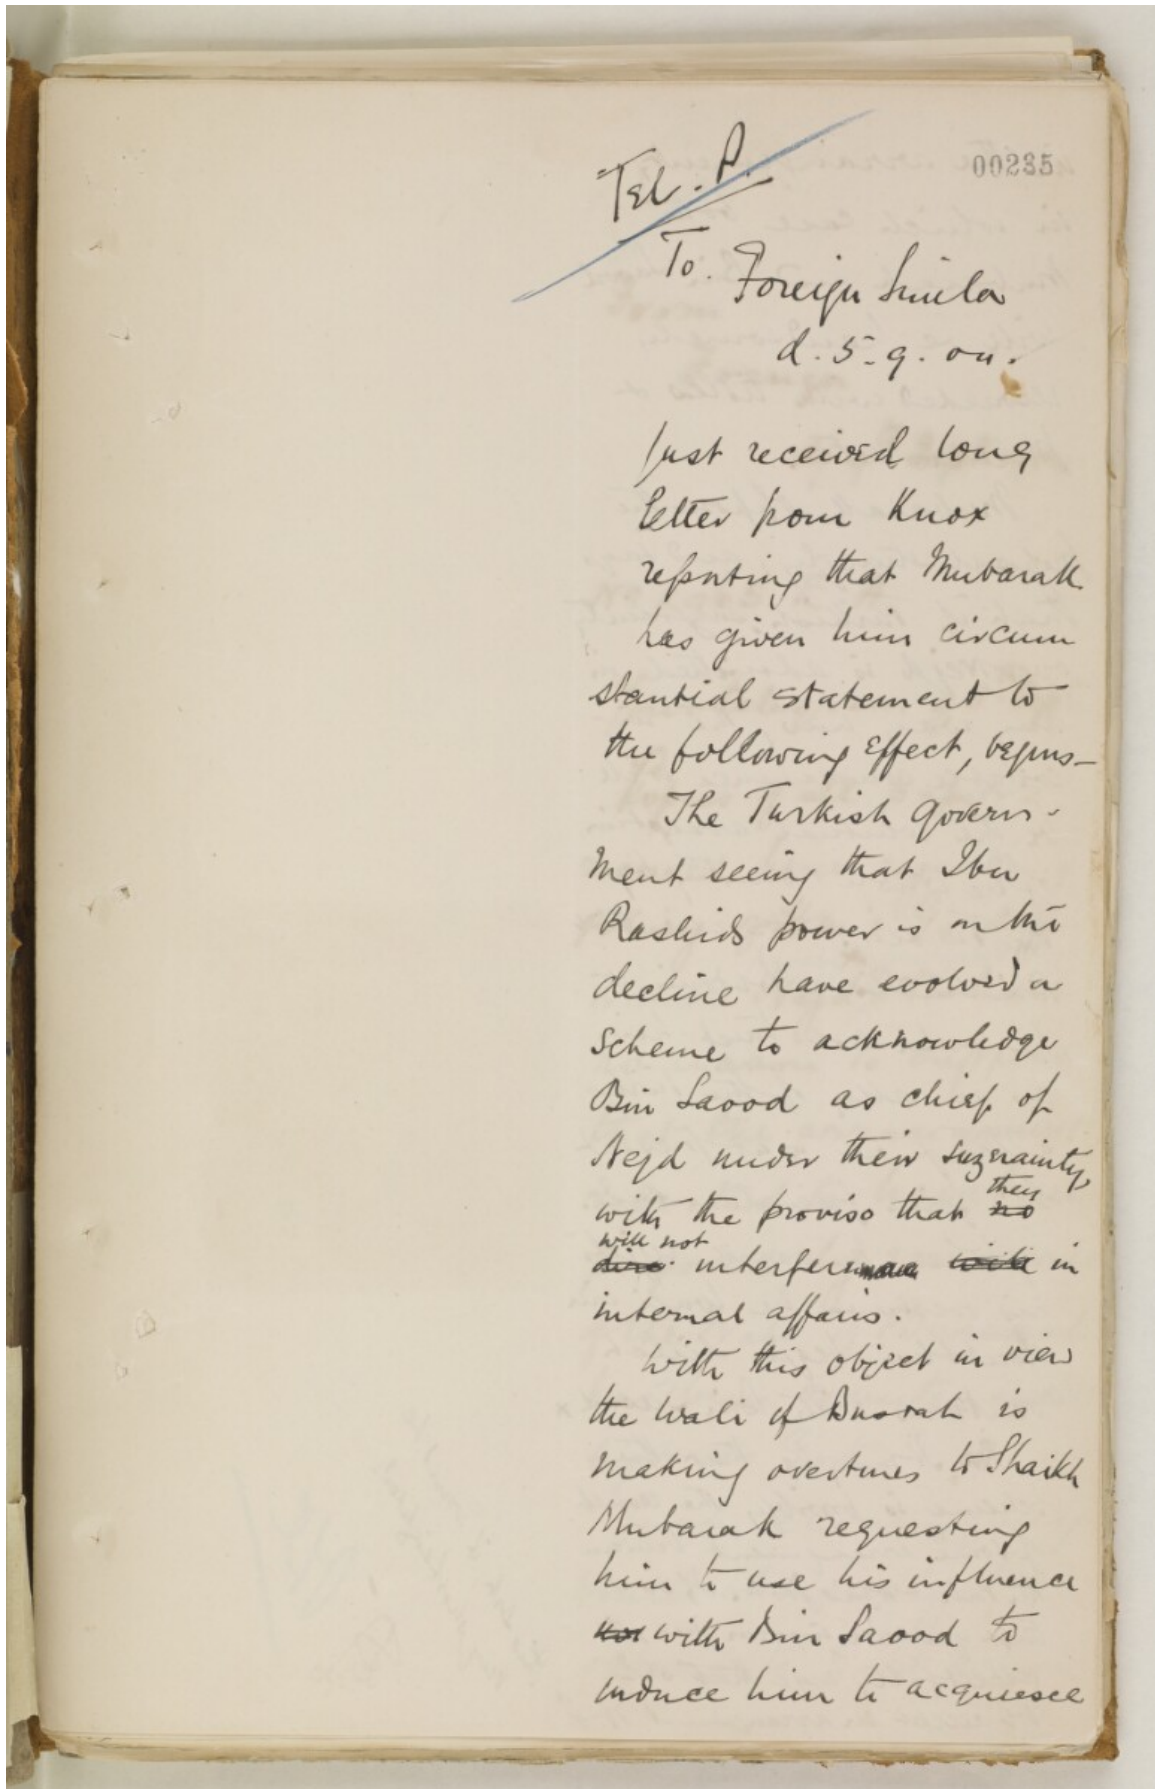 00235
Tel. P.
To. Foreign Simla
d. 5. 9. 04.
Just received long
letter from Knox
reporting that Mubarak
has given him circum
stantial statement to
the following effect, begins—
The Turkish Govern-
ment seeing that Ibn
Rashids power is on the
decline have evolved a
scheme to acknowledge
Bin Saood as chief of
Nejd under their suzerainty,
with the proviso that no they
will not interfere with in
internal affairs.
With this object in view
the Wali of Busrah is
making overtures to Shaikh
Mubarak requesting
him to use his influence
with Bin Saood to
induce him to acquiesce